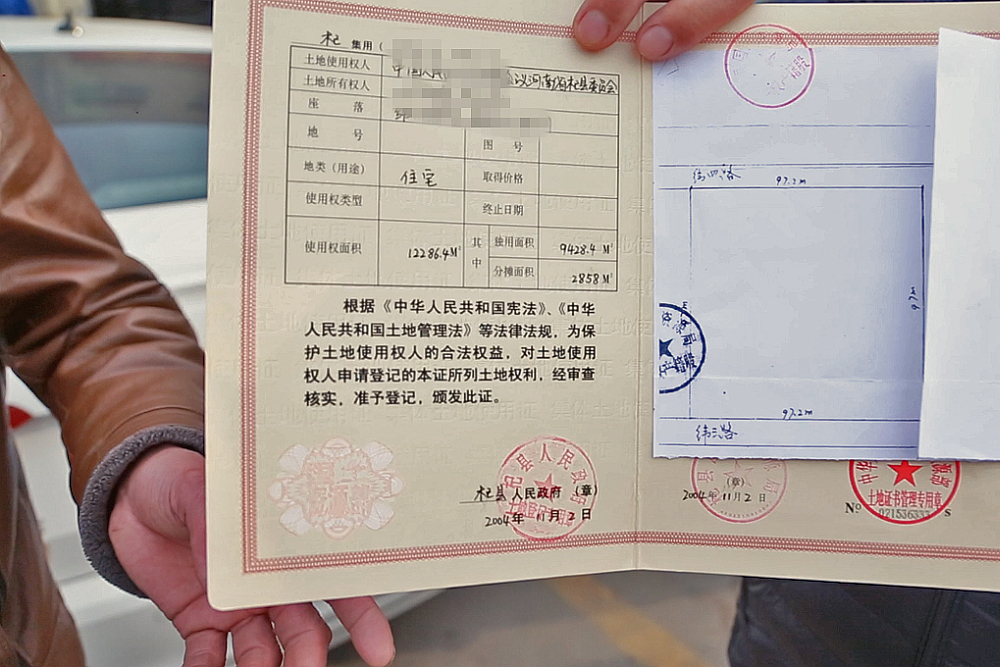 杞 集用（
土地使用权人
土地所有权人 议河南省杞县委员会
座 落
地 号 图 号
地类（用途） 住宅 取得价格
使用权类型 终止日期
使用权面积 12286.4M² 其中 独用面积 9428.4 M²
分摊面积 2858 M²
根据《中华人民共和国宪法》、《中华
人民共和国土地管理法》等法律法规，为保
护土地使用权人的合法权益，对土地使用
权人申请登记的本证所列土地权利，经审查
核实，准予登记，颁发此证。
杞县 人民政府 （章）
2004年 11月 2 日
纬四路
97.2m
97m
97.2m
纬三路
（章）
2004年 11月 2 日
土地证书管理专用章
Nº 021536333